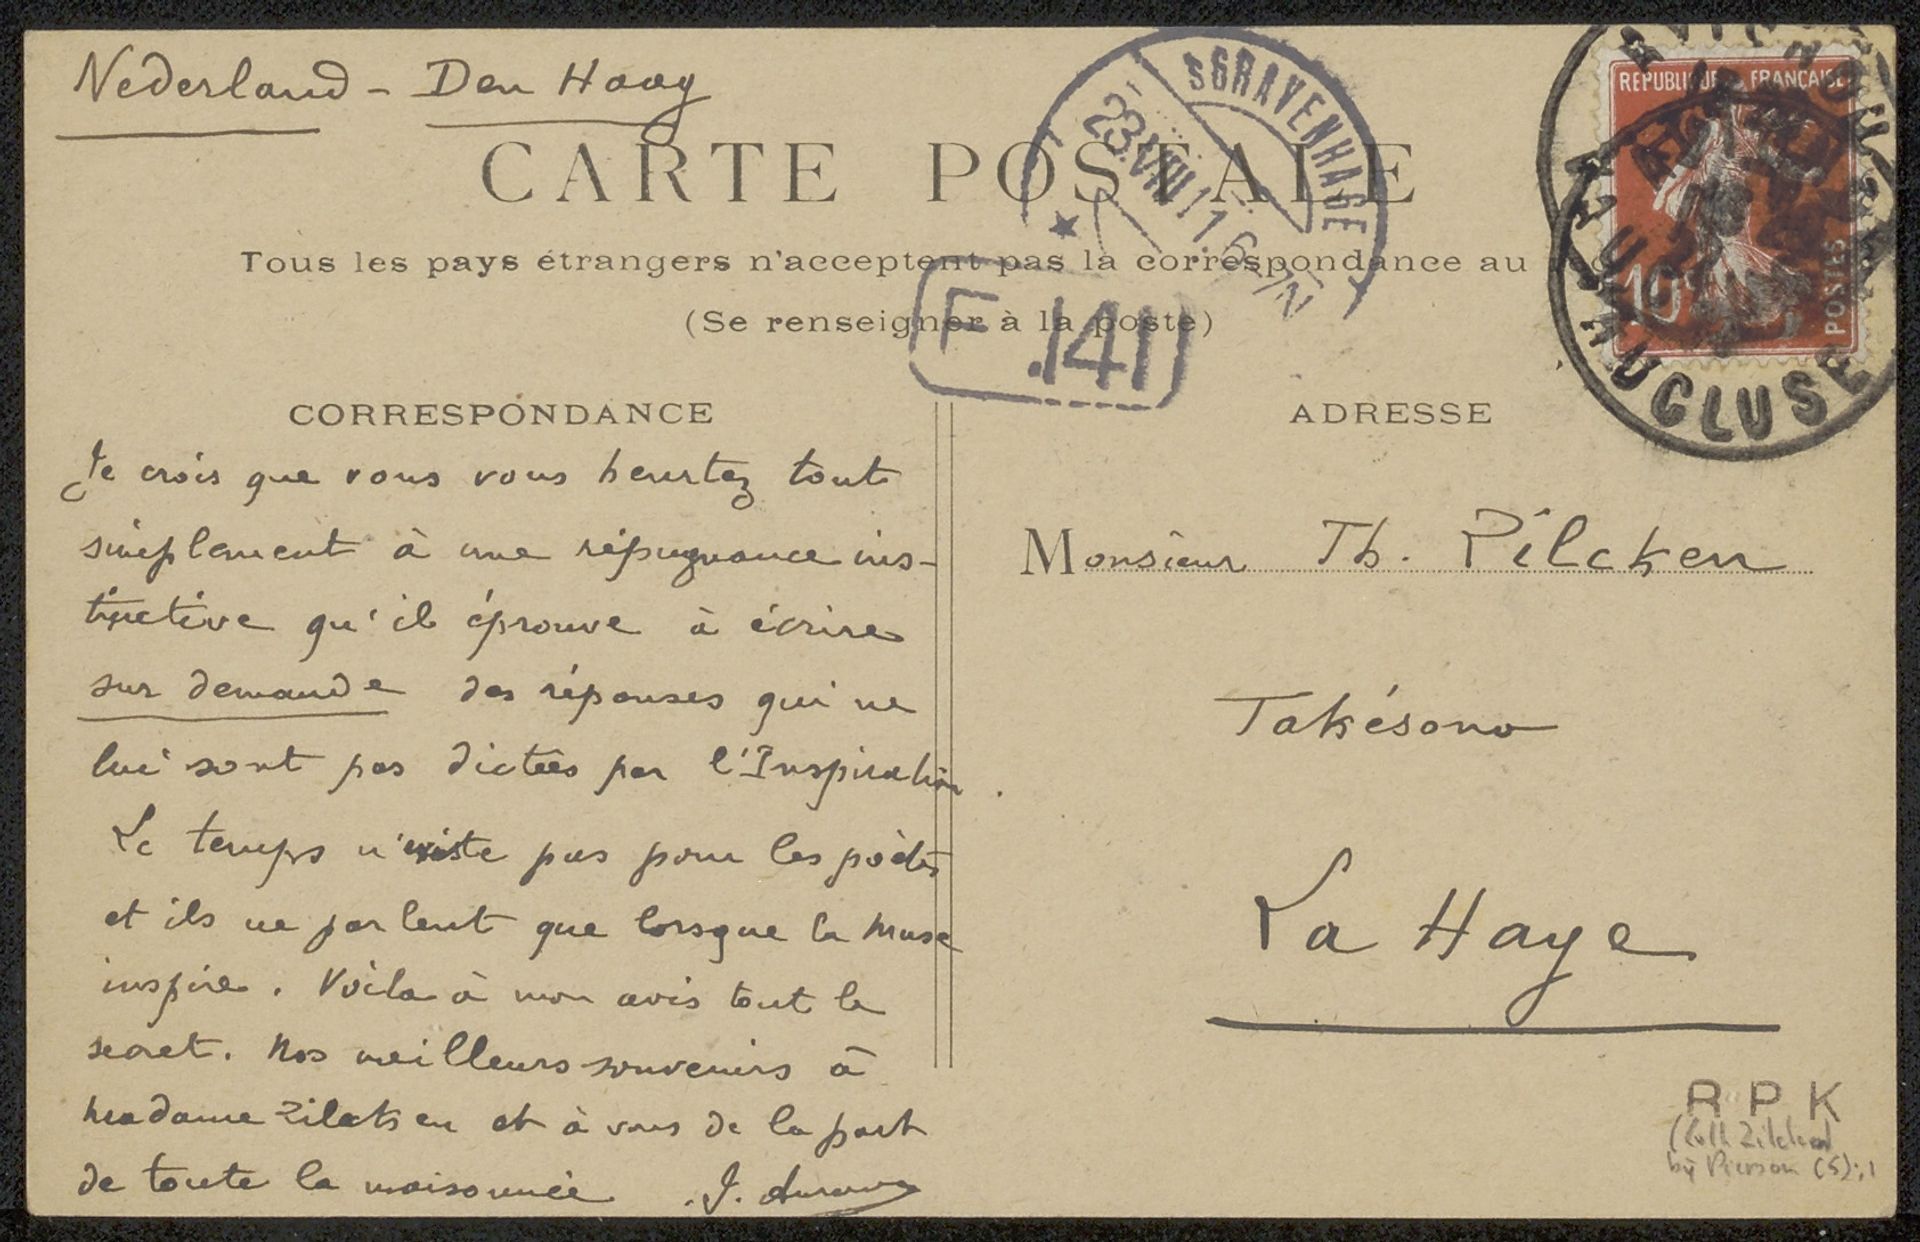 Nederland - Den Haag
CARTE POSTALE
Tous les pays étrangers n'acceptent pas la correspondance au
(Se renseigner à la poste)
SGRAVENHAGE
23 VIII 11 6
F.1411
REPUBLIQUE FRANÇAISE
10
POSTES
VAUCLUSE
CORRESPONDANCE
Je crois que vous vous heurtez tout
simplement à une répugnance ins-
tinctive qu'il éprouve à écrire
sur demande des réponses qui ne
lui sont pas dictées par l'Inspiration.
Le temps n'existe pas pour les poètes
et ils ne parlent que lorsque la muse
inspire. Voilà à mon avis tout le
secret. Nos meilleurs souvenirs à
Madame Zilcken et à vous de la part
de toute la maisonnée J.
ADRESSE
Monsieur Th. Pilcken
Takésono
La Haye
RPK
(Coll. Zilcken
bij Pierson (S):1